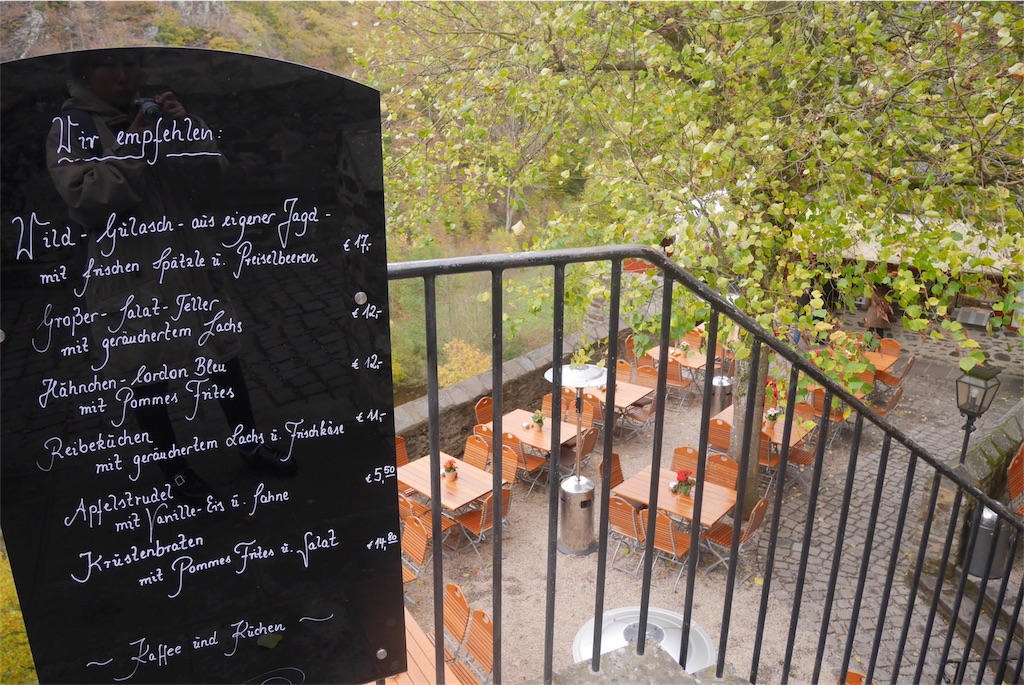 Wir empfehlen:
Wild - Gulasch - aus eigener Jagd -
mit frischen Spätzle u. Preiselbeeren € 17,-
Großer - Salat - Teller
mit geräuchertem Lachs € 12,-
Hähnchen - Cordon Bleu € 12,-
mit Pommes Frites
Reibekuchen € 11,-
mit geräuchertem Lachs u. Frischkäse
Apfelstrudel € 5,50
mit Vanille-Eis u. Sahne
Krustenbraten € 14,80
mit Pommes Frites u. Salat
~ Kaffee und Kuchen ~